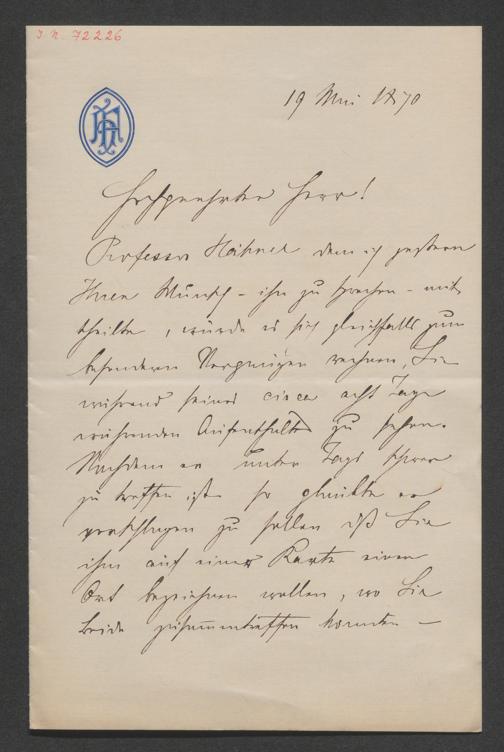 I. N. 72226
19 Mai 1870
Hochgeehrter Herr!
Professor Hähnel dem ich gestern
Ihren Wunsch – ihn zu sprechen – mit
theilte, würde es sich gleichfalls zum
besonderen Vergnügen rechnen, Sie
während seines circa acht Tage
währenden Aufenthaltes zu sehen.
Nachdem er unter Tags schwer
zu treffen ist so glaubte er
vorschlagen zu sollen daß Sie
ihm auf einer Karte einen
Ort bezeichnen wollen, wo Sie
beide zusammentreffen könnten –